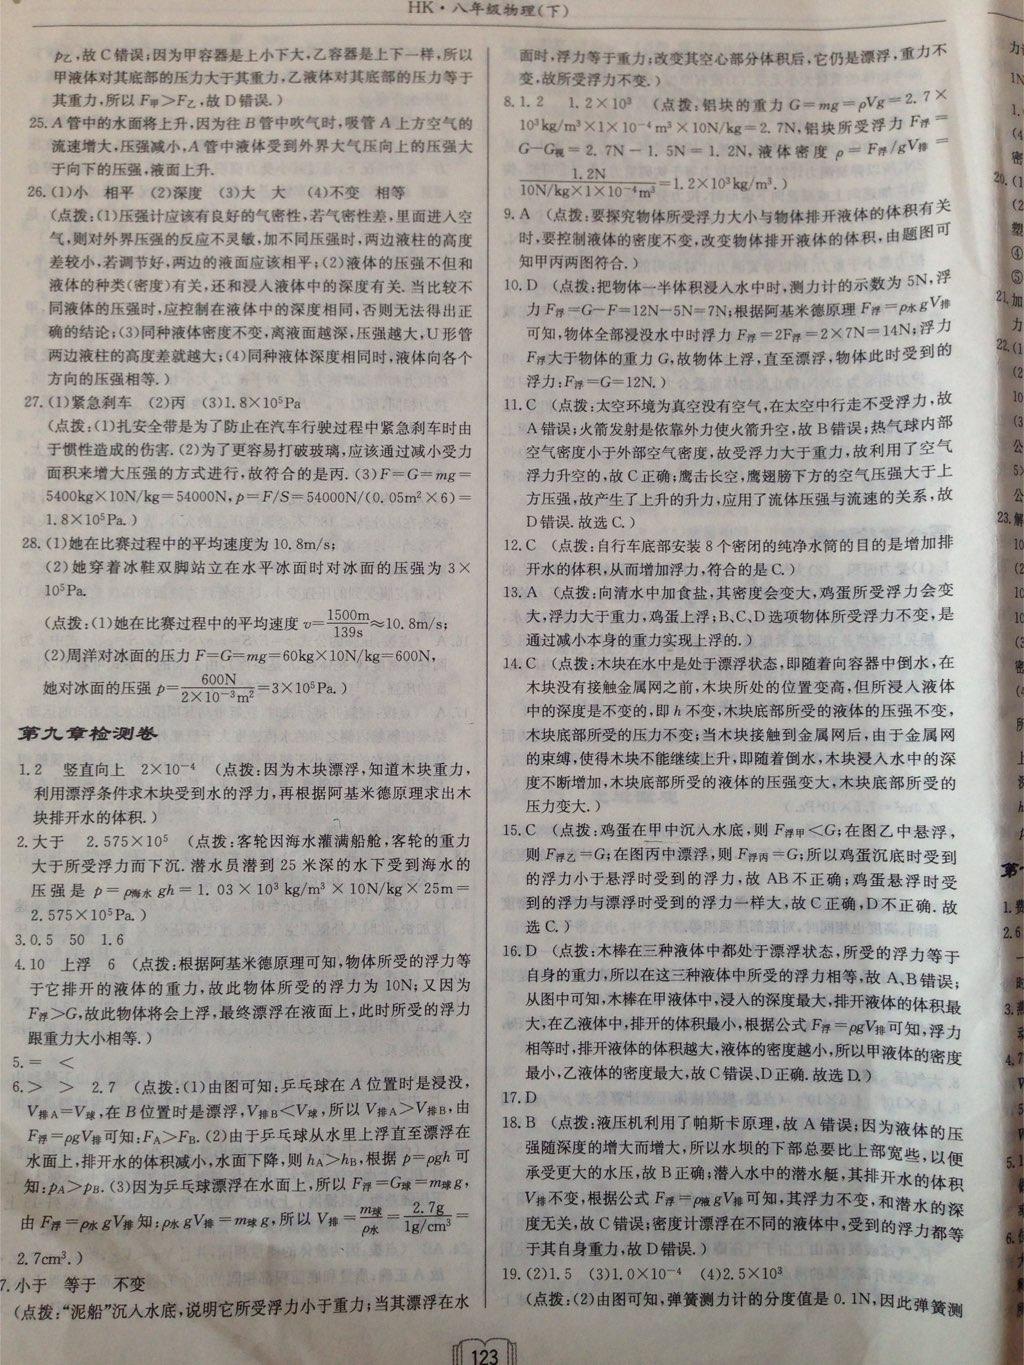 HK·八年级物理(下)
p乙,故C错误;因为甲容器是上小下大,乙容器是上下一样,所以
甲液体对其底部的压力大于其重力,乙液体对其底部的压力等于
其重力,所以F甲>F乙,故D错误.)
25.A管中的水面将上升,因为往B管中吹气时,吸管A上方空气的
流速增大,压强减小,A管中液体受到外界大气压向上的压强大
于向下的压强,液面上升.
26.(1)小 相平 (2)深度 (3)大 大 (4)不变 相等
(点拨:(1)压强计应该有良好的气密性,若气密性差,里面进入空
气,则对外界压强的反应不灵敏,加不同压强时,两边液柱的高度
差较小,若调节好,两边的液面应该相平;(2)液体的压强不但和
液体的种类(密度)有关,还和浸入液体中的深度有关.当比较不
同液体的压强时,应控制在液体中的深度相同,否则无法得出正
确的结论;(3)同种液体密度不变,离液面越深,压强越大,U形管
两边液柱的高度差就越大;(4)同种液体深度相同时,液体向各个
方向的压强相等.)
27.(1)紧急刹车 (2)丙 (3)1.8×10⁵Pa
(点拨:(1)扎安全带是为了防止在汽车行驶过程中紧急刹车时由
于惯性造成的伤害.(2)为了更容易打破玻璃,应该通过减小受力
面积来增大压强的方式进行,故符合的是丙.(3)F=G=mg=
5400kg×10N/kg=54000N,p=F/S=54000N/(0.05m²×6)=
1.8×10⁵Pa.)
28.(1)她在比赛过程中的平均速度为10.8m/s;
(2)她穿着冰鞋双脚站立在水平冰面时对冰面的压强为3×
10⁵Pa.
(点拨:(1)她在比赛过程中的平均速度v=1500m/139s≈10.8m/s;
(2)周洋对冰面的压力F=G=mg=60kg×10N/kg=600N,
她对冰面的压强p=600N/2×10⁻³m²=3×10⁵Pa.)
第九章检测卷
1.2 竖直向上 2×10⁻⁴ (点拨:因为木块漂浮,知道木块重力,
利用漂浮条件求木块受到水的浮力,再根据阿基米德原理求出木
块排开水的体积.)
2.大于 2.575×10⁵ (点拨:客轮因海水灌满船舱,客轮的重力
大于所受浮力而下沉.潜水员潜到25米深的水下受到海水的
压强是p=ρ海水gh=1.03×10³kg/m³×10N/kg×25m=
2.575×10⁵Pa.)
3.0.5 50 1.6
4.10 上浮 6 (点拨:根据阿基米德原理可知,物体所受的浮力等
于它排开的液体的重力,故此物体所受的浮力为10N;又因为
F浮>G,故此物体将会上浮,最终漂浮在液面上,此时所受的浮力
跟重力大小相等.)
5.= <
6.> > 2.7 (点拨:(1)由图可知:乒乓球在A位置时是浸没,
V排A=V球,在B位置时是漂浮,V排B<V球,所以V排A>V排B,由
F浮=ρgV排可知:FA>FB.(2)由于乒乓球从水里上浮直至漂浮在
水面上,排开水的体积减小,水面下降,则hA>hB,根据p=ρgh可
知:pA>pB.(3)因为乒乓球漂浮在水面上,所以F浮=G球=m球g,
由F浮=ρ水gV排知:ρ水gV排=m球g,所以V排=m球/ρ水=2.7g/1g/cm³=
2.7cm³.)
7.小于 等于 不变
(点拨:“泥船”沉入水底,说明它所受浮力小于重力;当其漂浮在水
面时,浮力等于重力;改变其空心部分体积后,它仍是漂浮,重力不
变,故所受浮力不变.)
8.1.2 1.2×10³ (点拨:铝块的重力G=mg=ρVg=2.7×
10³kg/m³×1×10⁻⁴m³×10N/kg=2.7N,铝块所受浮力F浮=
G-G视=2.7N-1.5N=1.2N,液体密度ρ=F浮/gV排=
1.2N/10N/kg×1×10⁻⁴m³=1.2×10³kg/m³.)
9.A (点拨:要探究物体所受浮力大小与物体排开液体的体积有关
时,要控制液体的密度不变,改变物体排开液体的体积,由题图可
知甲丙两图符合.)
10.D (点拨:把物体一半体积浸入水中时,测力计的示数为5N,浮
力F浮=G-F=12N-5N=7N;根据阿基米德原理F浮=ρ水gV排
可知,物体全部浸没水中时浮力F浮=2F浮=2×7N=14N;浮力
F浮大于物体的重力G,故物体上浮,直至漂浮,物体此时受到的
浮力:F浮=G=12N.)
11.C (点拨:太空环境为真空没有空气,在太空中行走不受浮力,故
A错误;火箭发射是依靠外力使火箭升空,故B错误;热气球内部
空气密度小于外部空气密度,故受浮力大于重力,故利用了空气
浮力升空的,故C正确;鹰击长空,鹰翅膀下方的空气压强大于上
方压强,故产生了上升的升力,应用了流体压强与流速的关系,故
D错误.故选C.)
12.C (点拨:自行车底部安装8个密闭的纯净水筒的目的是增加排
开水的体积,从而增加浮力,符合的是C.)
13.A (点拨:向清水中加食盐,其密度会变大,鸡蛋所受浮力会变
大,浮力大于重力,鸡蛋上浮;B、C、D选项物体所受浮力不变,是
通过减小本身的重力实现上浮的.)
14.C (点拨:木块在水中是处于漂浮状态,即随着向容器中倒水,在
木块没有接触金属网之前,木块所处的位置变高,但所浸入液体
中的深度是不变的,即h不变,木块底部所受的液体的压强不变,
木块底部所受的压力不变;当木块接触到金属网后,由于金属网
的束缚,使得木块不能继续上升,即随着倒水,木块浸入水中的深
度不断增加,木块底部所受的液体的压强变大,木块底部所受的
压力变大.)
15.C (点拨:鸡蛋在甲中沉入水底,则F浮甲<G;在图乙中悬浮,
则F浮乙=G;在图丙中漂浮,则F浮丙=G;所以鸡蛋沉底时受到
的浮力小于悬浮时受到的浮力,故AB不正确;鸡蛋悬浮时受
到的浮力与漂浮时受到的浮力一样大,故C正确,D不正确.故
选C.)
16.D (点拨:木棒在三种液体中都处于漂浮状态,所受的浮力等于
自身的重力,所以在这三种液体中所受的浮力相等,故A、B错误;
从图中可知,木棒在甲液体中,浸入的深度最大,排开液体的体积最
大,在乙液体中,排开的体积最小,根据公式F浮=ρgV排可知,浮力
相等时,排开液体的体积越大,液体的密度越小,所以甲液体的密度
最小,乙液体的密度最大,故C错误、D正确.故选D.)
17.D
18.B (点拨:液压机利用了帕斯卡原理,故A错误;因为液体的压
强随深度的增大而增大,所以水坝的下部总要比上部宽些,以便
承受更大的水压,故B正确;潜入水中的潜水艇,其排开水的体积
V排不变,根据公式F浮=ρ液gV排可知,其浮力不变,和潜水的深
度无关,故C错误;密度计漂浮在不同的液体中,受到的浮力都等
于其自身重力,故D错误.)
19.(2)1.5 (3)1.0×10⁻⁴ (4)2.5×10³
(点拨:(2)由图可知,弹簧测力计的分度值是0.1N,因此弹簧测
123